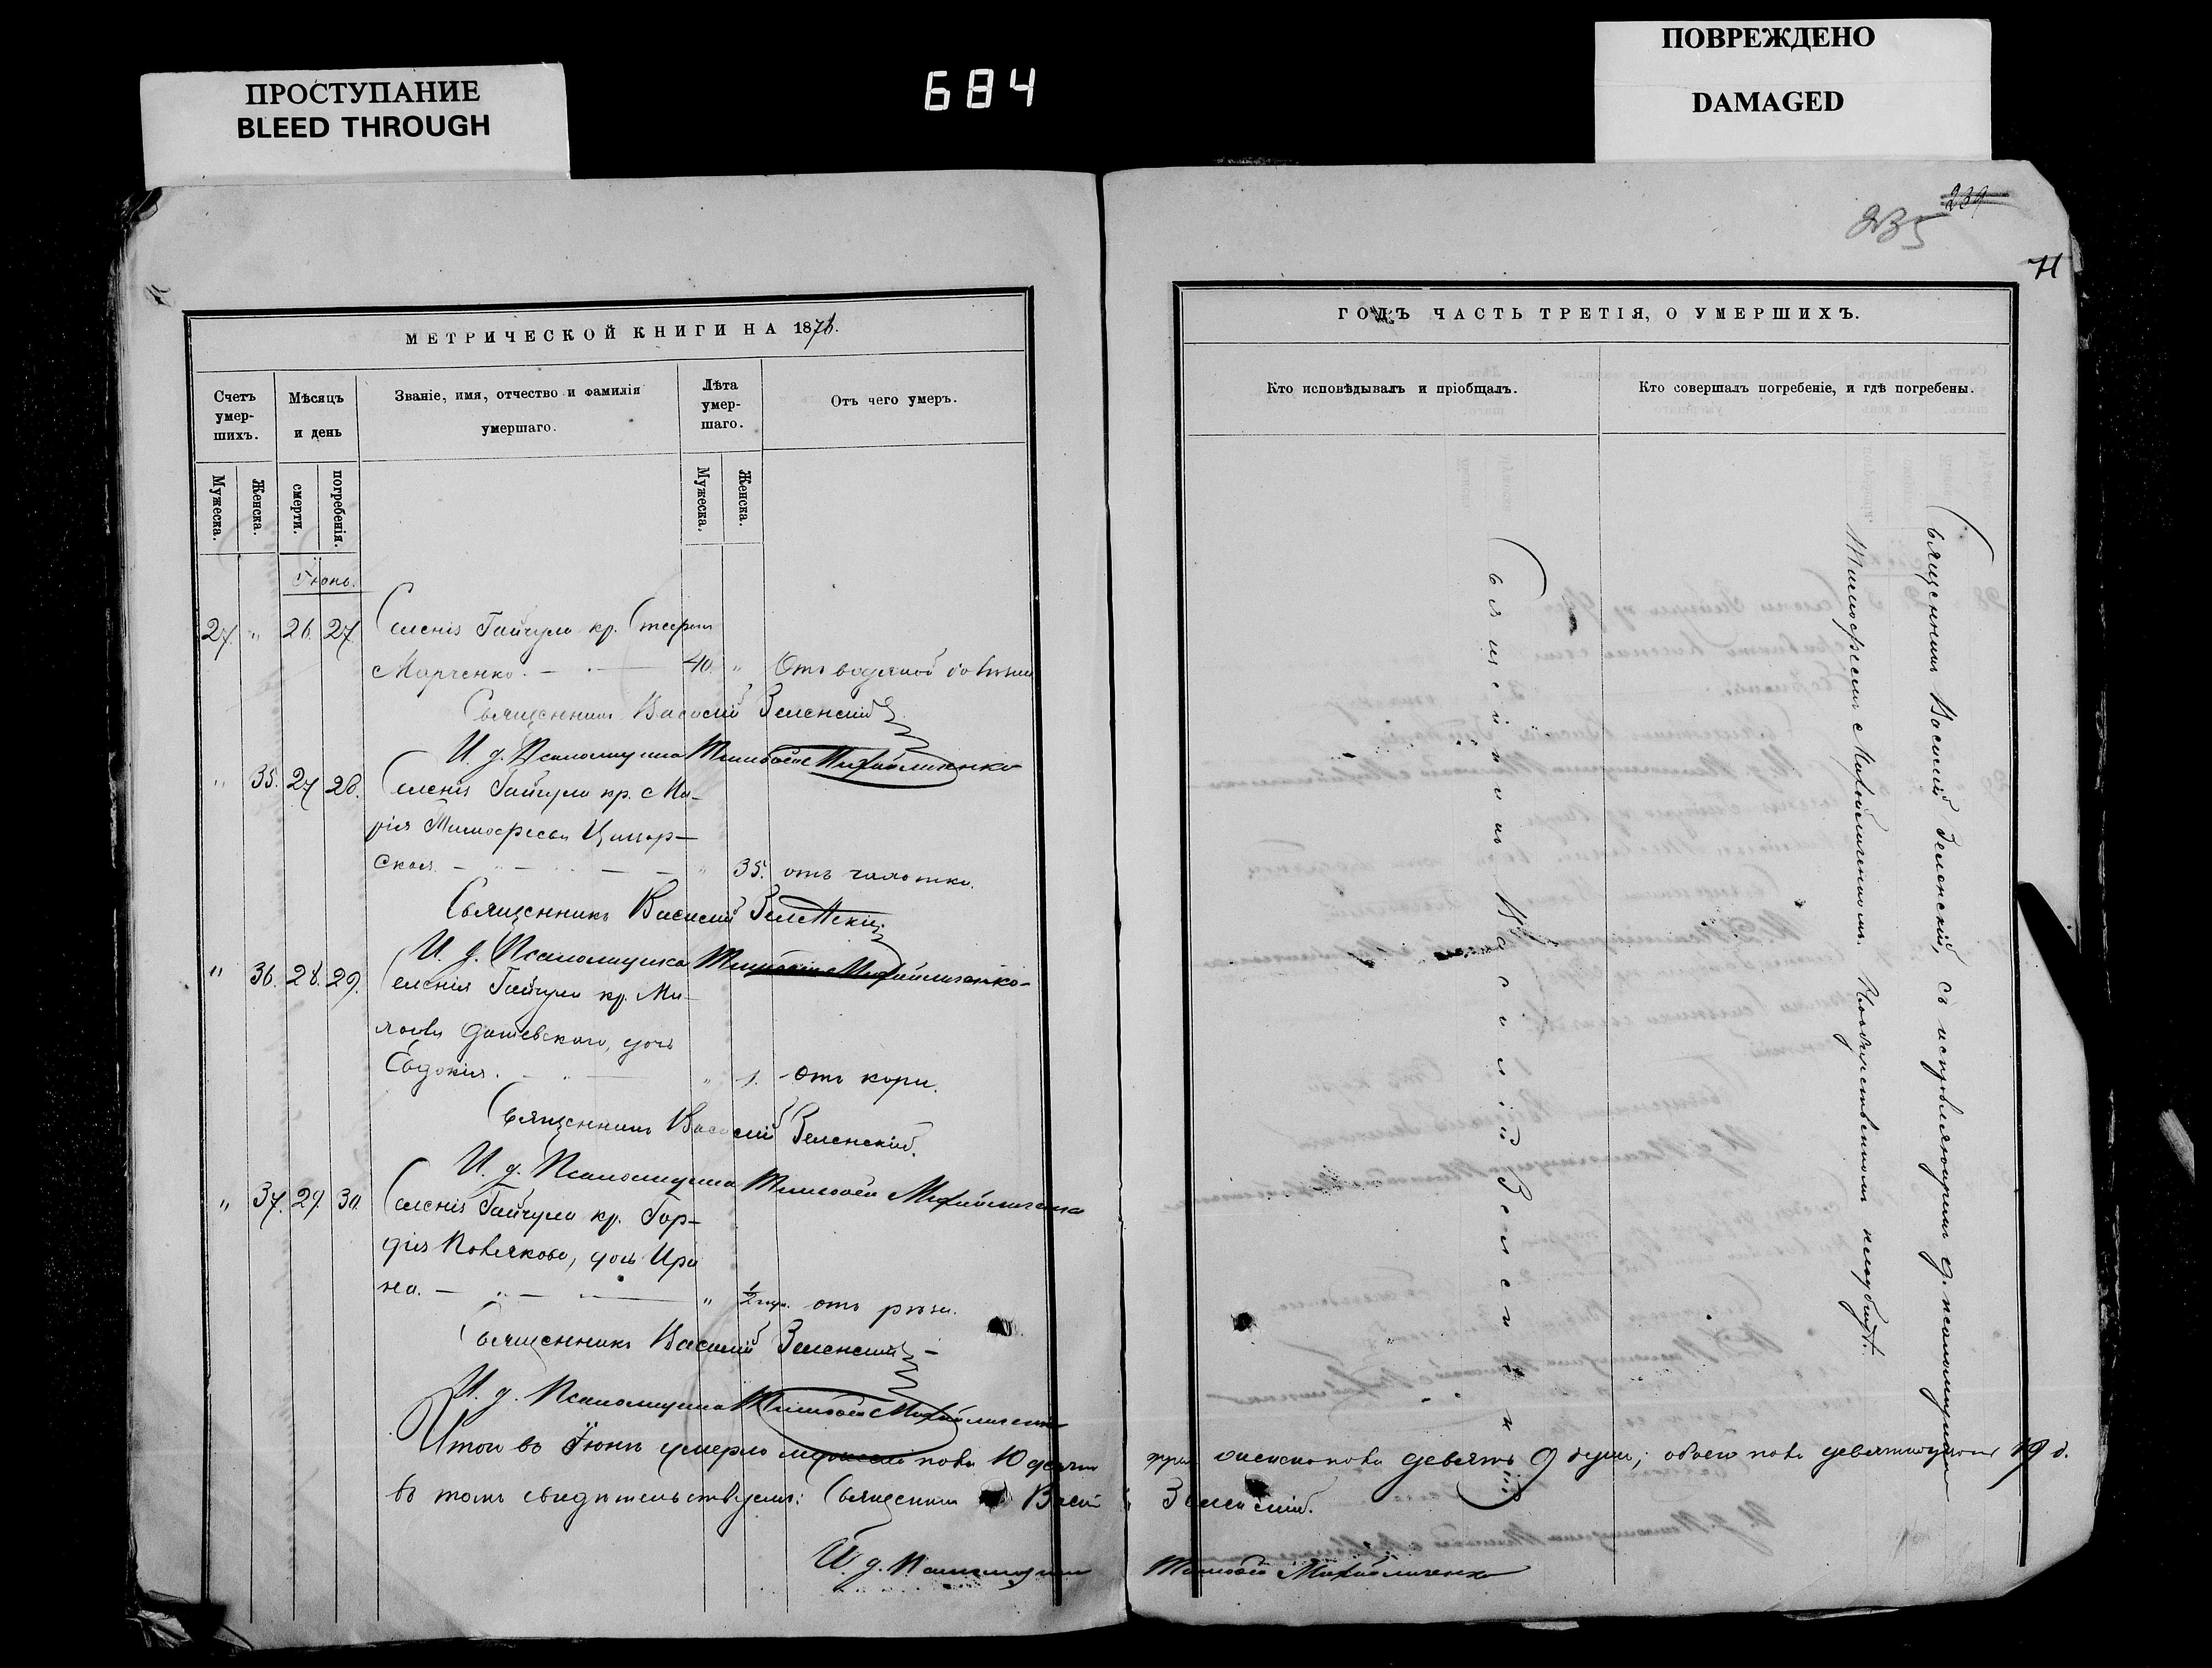 ПРОСТУПАНИЕ
BLEED THROUGH
684
ПОВРЕЖДЕНО
DAMAGED
239
235
71
МЕТРИЧЕСКОЙ КНИГИ НА 187
Счетъ умер-шихъ.
Мѣсяцъ и день
Званіе, имя, отчество и фамилія умершаго.
Лѣта умер-шаго.
Отъ чего умеръ.
Мужеска.
Женска.
смерти.
погребенія.
Мужеска.
Женска.
Іюнь.
27. " 26. 27. Селенія Гайчула кр.
Марченко. — 40. " Отъ водяной болѣзни
Священникъ Василій Зеленскій
И. д. Псаломщика Тимофей Михайличенко
" 35. 27 28. Селенія Гайчула кр. Ма-
рія Тимофеева
ская. — " 35. отъ чахотки.
Священникъ Василій Зеленскій
И. д. Псаломщика Тимофей Михайличенко
" 36. 28. 29. Селенія Гайчула кр.
дочь
Евдокія. — " 1. Отъ кори.
Священникъ Василій Зеленскій.
И. д. Псаломщика Тимофей Михайличенко
" 37. 29. 30. Селенія Гайчула кр. Гор-
дія Полякова, дочь Ири
на. — " ½ отъ рѣзи.
Священникъ Василій Зеленскій
И. д. Псаломщика Тимофей Михайличенко
Итого въ Іюнѣ умерло мужеска пола 10 десять
въ томъ свидѣтельствуемъ: Священникъ Василій
И. д. Псаломщика
ГОДЪ ЧАСТЬ ТРЕТІЯ, О УМЕРШИХЪ.
Кто исповѣдывалъ и пріобщалъ.
Кто совершалъ погребеніе, и гдѣ погребены.
Священникъ Василій Зеленскій
Священникъ Василій Зеленскій, съ исправляющимъ д. псаломщика
Тимофеемъ Михайличенкомъ. На общественномъ кладбищѣ.
женска пола девять 9 душъ; обоего пола девятнадцать 19 д.
Зеленскій.
Тимофей Михайличенко